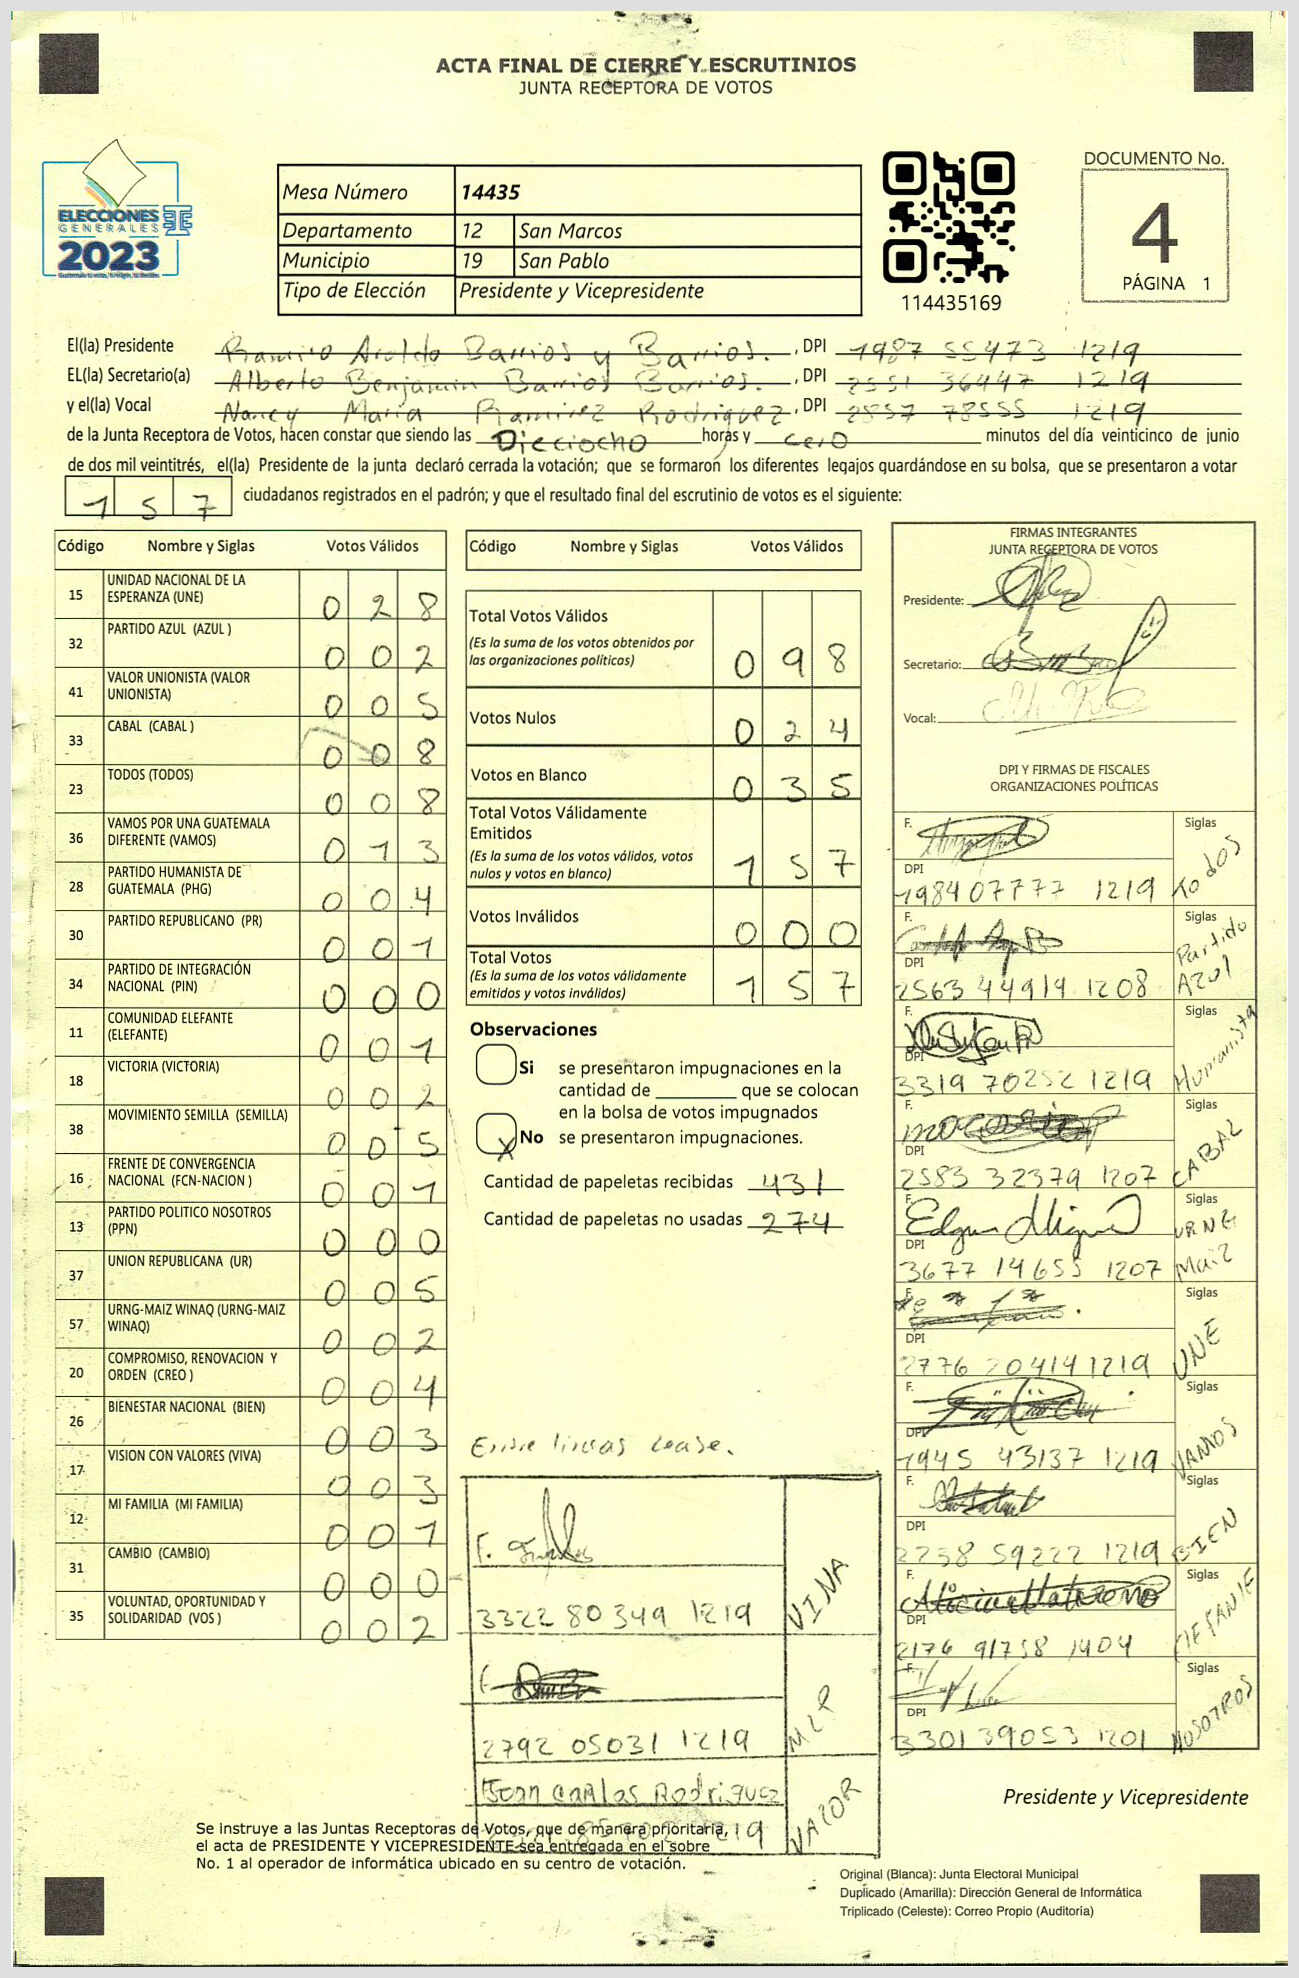 ACTA FINAL DE CIERRE Y ESCRUTINIOS
JUNTA RECEPTORA DE VOTOS
ELECCIONES
GENERALES
2023
Mesa Número 14435
Departamento 12 San Marcos
Municipio 19 San Pablo
Tipo de Elección Presidente y Vicepresidente
114435169
DOCUMENTO No.
4
PÁGINA 1
El(la) Presidente Ramiro Aroldo Barrios y Barrios. , DPI 1987 55473 1219
EL(la) Secretario(a) Alberto Benjamin Barrios Barrios. , DPI 2551 36447 1219
y el(la) Vocal Nancy Maria Ramirez Rodriguez , DPI 2857 78555 1219
de la Junta Receptora de Votos, hacen constar que siendo las Dieciocho horas y cero minutos del día veinticinco de junio
de dos mil veintitrés, el(la) Presidente de la junta declaró cerrada la votación; que se formaron los diferentes legajos guardándose en su bolsa, que se presentaron a votar
157 ciudadanos registrados en el padrón; y que el resultado final del escrutinio de votos es el siguiente:
Código Nombre y Siglas Votos Válidos
15 UNIDAD NACIONAL DE LA
ESPERANZA (UNE) 0 2 8
32 PARTIDO AZUL (AZUL ) 0 0 2
41 VALOR UNIONISTA (VALOR
UNIONISTA) 0 0 5
33 CABAL (CABAL ) 0 0 8
23 TODOS (TODOS) 0 0 8
36 VAMOS POR UNA GUATEMALA
DIFERENTE (VAMOS) 0 1 3
28 PARTIDO HUMANISTA DE
GUATEMALA (PHG) 0 0 4
30 PARTIDO REPUBLICANO (PR) 0 0 1
34 PARTIDO DE INTEGRACIÓN
NACIONAL (PIN) 0 0 0
11 COMUNIDAD ELEFANTE
(ELEFANTE) 0 0 1
18 VICTORIA (VICTORIA) 0 0 2
38 MOVIMIENTO SEMILLA (SEMILLA) 0 0 5
16 FRENTE DE CONVERGENCIA
NACIONAL (FCN-NACION ) 0 0 1
13 PARTIDO POLITICO NOSOTROS
(PPN) 0 0 0
37 UNION REPUBLICANA (UR) 0 0 5
57 URNG-MAIZ WINAQ (URNG-MAIZ
WINAQ) 0 0 2
20 COMPROMISO, RENOVACION Y
ORDEN (CREO ) 0 0 4
26 BIENESTAR NACIONAL (BIEN) 0 0 3
17 VISION CON VALORES (VIVA) 0 0 3
12 MI FAMILIA (MI FAMILIA) 0 0 1
31 CAMBIO (CAMBIO) 0 0 0
35 VOLUNTAD, OPORTUNIDAD Y
SOLIDARIDAD (VOS ) 0 0 2
Código Nombre y Siglas Votos Válidos
Total Votos Válidos
(Es la suma de los votos obtenidos por
las organizaciones políticas) 0 9 8
Votos Nulos 0 2 4
Votos en Blanco 0 3 5
Total Votos Válidamente
Emitidos
(Es la suma de los votos válidos, votos
nulos y votos en blanco) 1 5 7
Votos Inválidos 0 0 0
Total Votos
(Es la suma de los votos válidamente
emitidos y votos inválidos) 1 5 7
Observaciones
Si se presentaron impugnaciones en la
cantidad de ________ que se colocan
en la bolsa de votos impugnados
X No se presentaron impugnaciones.
Cantidad de papeletas recibidas 431
Cantidad de papeletas no usadas 274
Entre lineas Lease.
F.
3322 80349 1219 VINA
F.
2792 05031 1219 MLP
Juan Carlos Rodriguez
1219 VALOR
FIRMAS INTEGRANTES
JUNTA RECEPTORA DE VOTOS
Presidente:
Secretario:
Vocal:
DPI Y FIRMAS DE FISCALES
ORGANIZACIONES POLÍTICAS
F. Siglas
DPI
1984 07777 1219 Todos
F. Siglas
DPI
2563 44919 1208 Partido Azul
F. Siglas
DPI
3319 70252 1219 Humanista
F. Siglas
DPI
2583 32379 1207 CABAL
F. Edgar Miguel Siglas
DPI
3677 14655 1207 URNG Maiz
F. Siglas
DPI
2776 20414 1219 UNE
F. Siglas
DPI
1945 43137 1219 VAMOS
F. Siglas
DPI
2238 59222 1219 BIEN
F. Siglas
DPI
2176 91758 1404
F. Siglas
DPI
3301 39053 1201 NOSOTROS
Presidente y Vicepresidente
Se instruye a las Juntas Receptoras de Votos, que de manera prioritaria,
el acta de PRESIDENTE Y VICEPRESIDENTE sea entregada en el sobre
No. 1 al operador de informática ubicado en su centro de votación.
Original (Blanca): Junta Electoral Municipal
Duplicado (Amarilla): Dirección General de Informática
Triplicado (Celeste): Correo Propio (Auditoría)